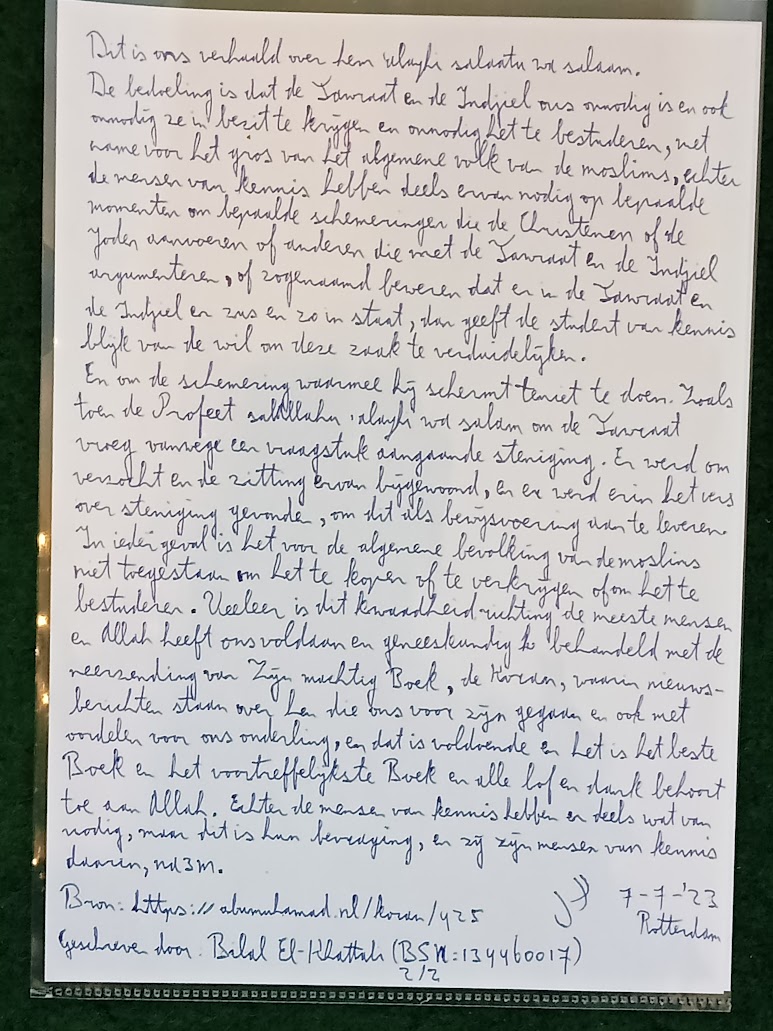 Dit is ons verhaald over hem 'alayhi salaatu wa salaam.
De bedoeling is dat de Tawraat en de Indjiel ons onnodig is en ook
onnodig ze in bezit te krijgen en onnodig het te bestuderen, met
name voor het gros van het algemene volk van de moslims, echter
de mensen van kennis hebben deels ervan nodig op bepaalde
momenten om bepaalde schemeringen die de Christenen of de
Joden aanvoeren of anderen die met de Tawraat en de Indjiel
argumenteren, of zogenaamd beweren dat er in de Tawraat en
de Indjiel er zus en zo in staat, dan geeft de student van kennis
blijk van de wil om deze zaak te verduidelijken.
En om de schemering waarmee hij schermt teniet te doen. Zoals
toen de Profeet salAllahu 'alayhi wa salam om de Tawraat
vroeg vanwege een vraagstuk aangaande steniging. Er werd om
verzocht en de zitting ervan bijgewoond, en er werd erin het vers
over steniging gevonden, om dit als bewijsvoering aan te leveren.
In ieder geval is het voor de algemene bevolking van de moslims
niet toegestaan om het te kopen of te verkrijgen of om het te
bestuderen. Veeleer is dit kwaadheid richting de meeste mensen
en Allah heeft ons voldaan en geneeskundig behandeld met de
neerzending van Zijn machtig Boek, de Koran, waarin nieuws-
berichten staan over hen die ons voor zijn gegaan en ook met
oordelen voor ons onderling, en dat is voldoende en het is het beste
Boek en het voortreffelijkste Boek en alle lof en dank behoort
toe aan Allah. Echter de mensen van kennis hebben er deels wat van
nodig, maar dit is hun bevraging, en zij zijn mensen van kennis
daarin, na3m.
Bron: https://abumuhamad.nl/koran/425
7-7-'23
Rotterdam
Geschreven door: Bilal El-Khattabi (BSN:134460017)
2/2